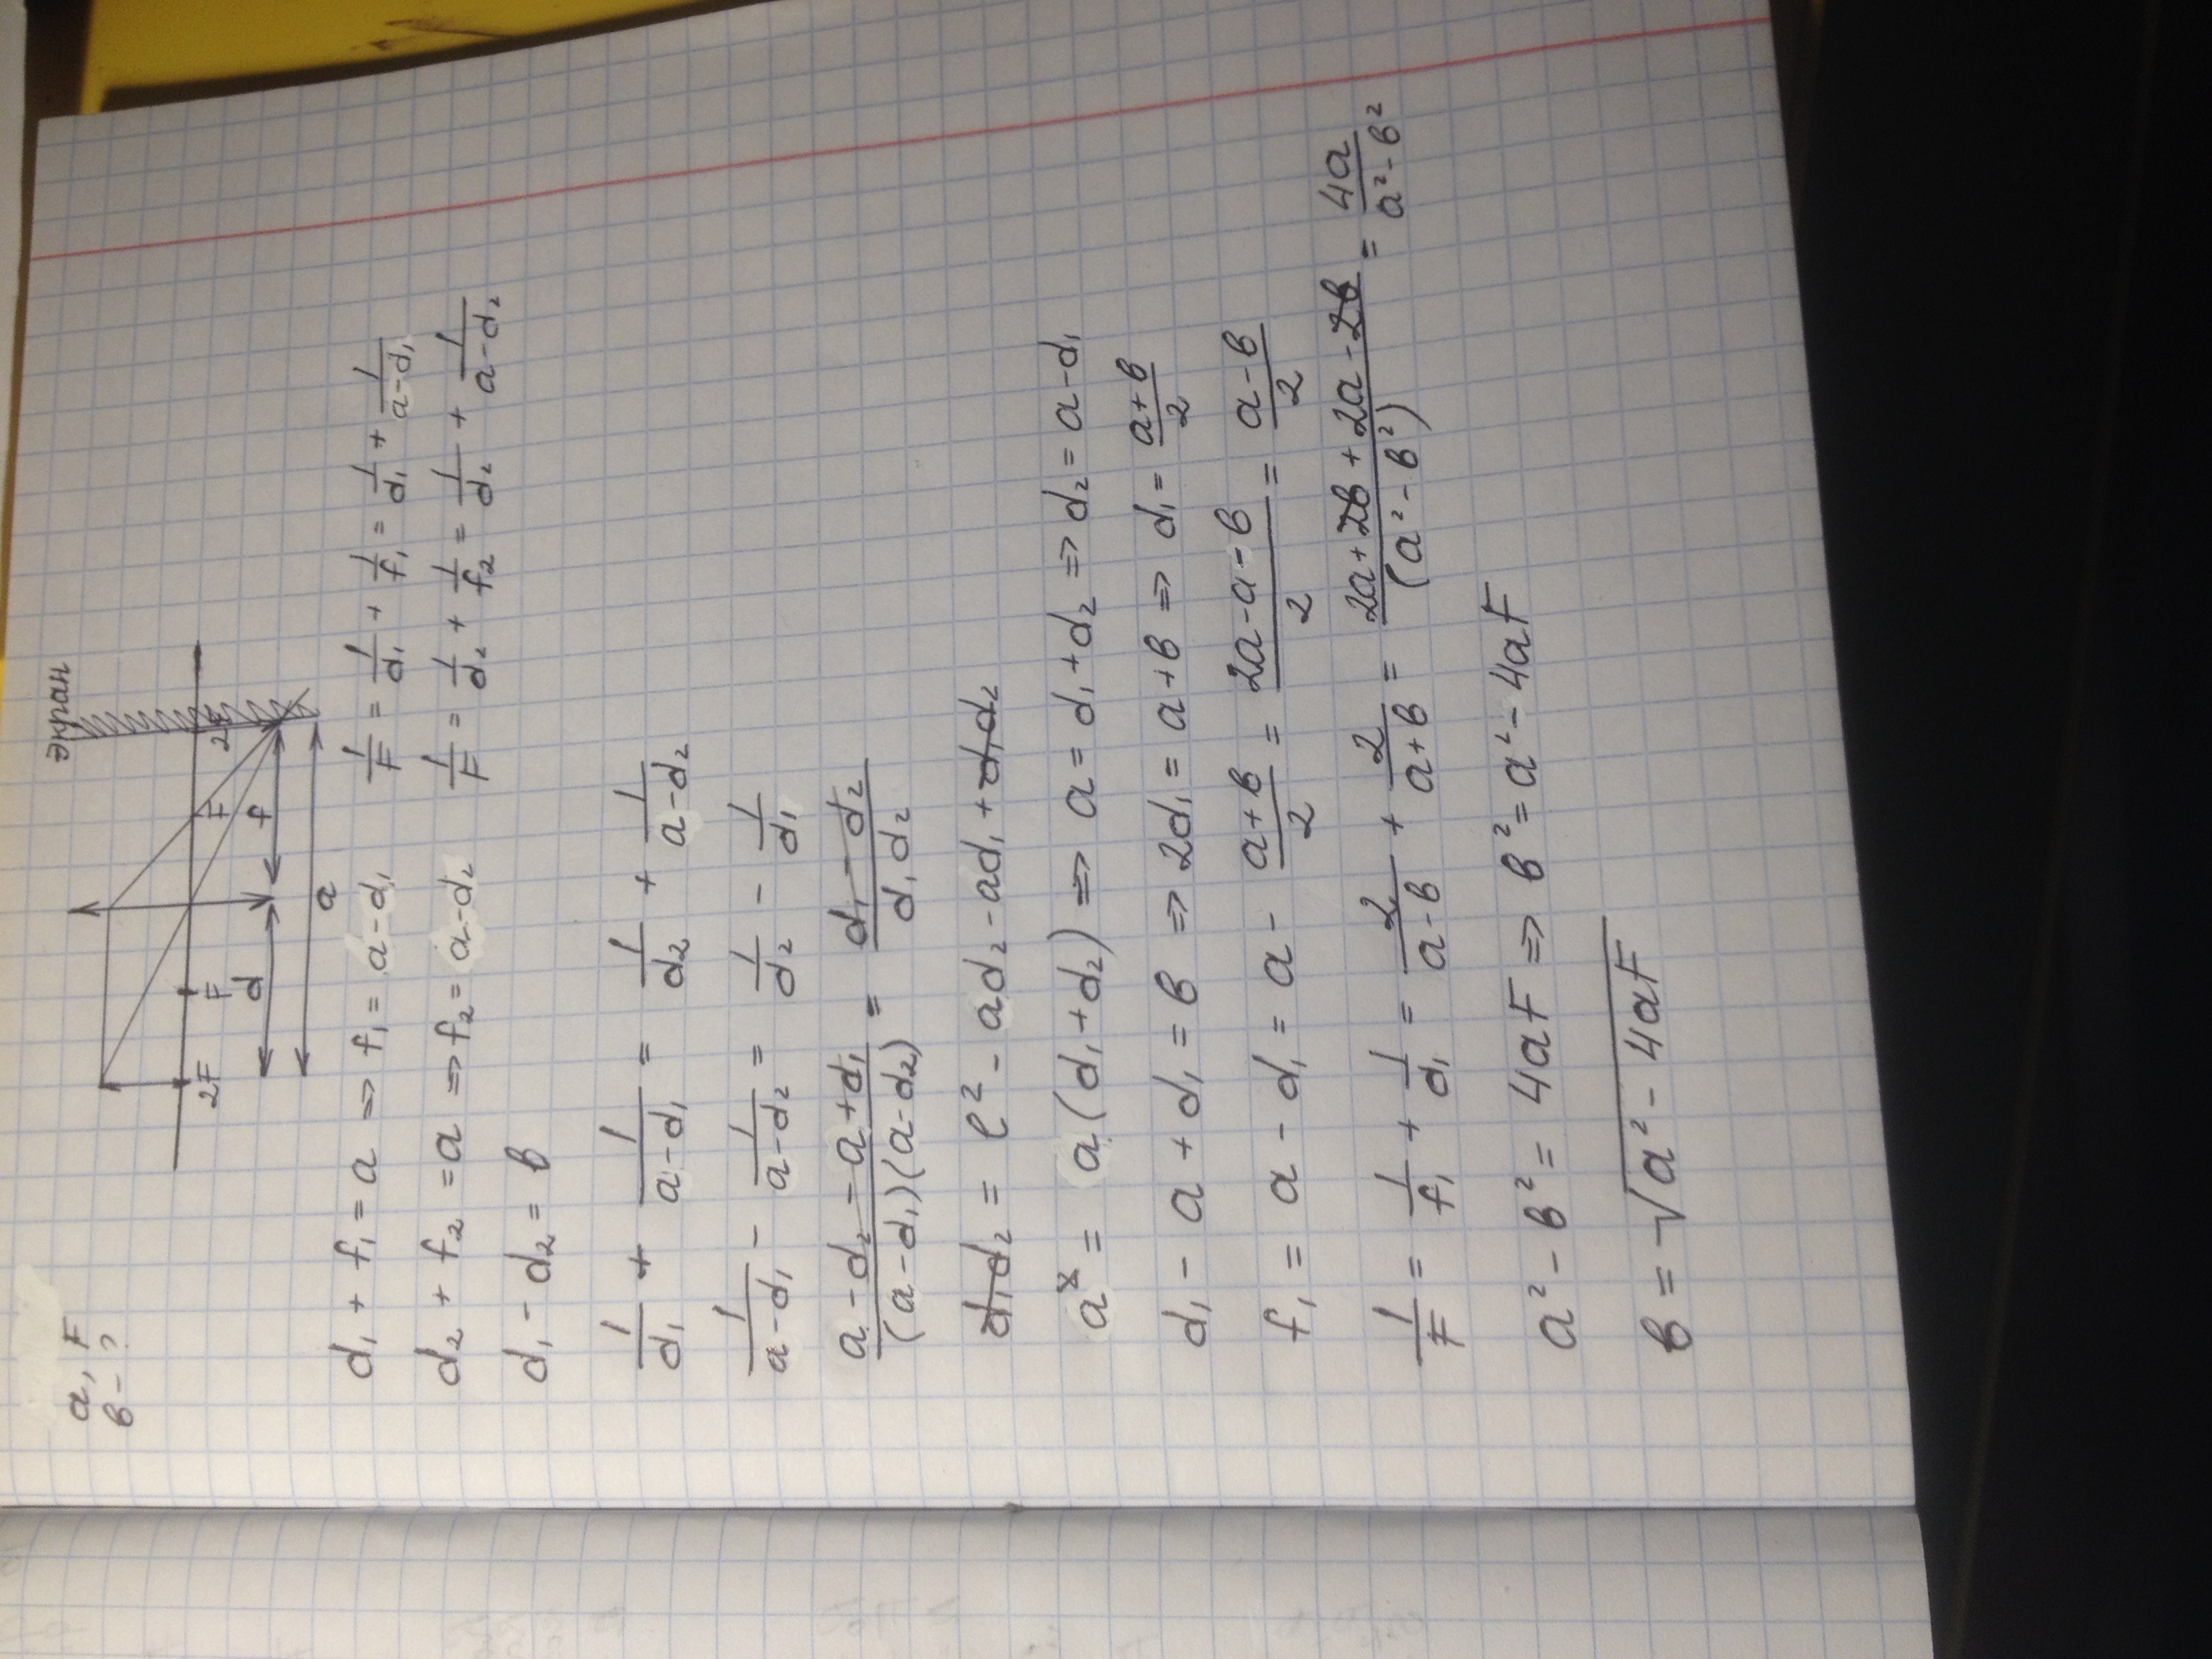 a, F
в - ?
экран
2F F F 2F
d f
a
d₁ + f₁ = a => f₁ = a - d₁ 1/F = 1/d₁ + 1/f₁ = 1/d₁ + 1/(a - d₁)
d₂ + f₂ = a => f₂ = a - d₂ 1/F = 1/d₂ + 1/f₂ = 1/d₂ + 1/(a - d₂)
d₁ - d₂ = в
1/d₁ + 1/(a - d₁) = 1/d₂ + 1/(a - d₂)
1/(a - d₁) - 1/(a - d₂) = 1/d₂ - 1/d₁
(a - d₂ - a + d₁)/((a - d₁)(a - d₂)) = (d₁ - d₂)/(d₁d₂)
d₁d₂ = ℓ² - ad₂ - ad₁ + d₁d₂
a² = a(d₁ + d₂) => a = d₁ + d₂ => d₂ = a - d₁
d₁ - a + d₁ = в => 2d₁ = a + в => d₁ = (a + в)/2
f₁ = a - d₁ = a - (a + в)/2 = (2a - a - в)/2 = (a - в)/2
1/F = 1/f₁ + 1/d₁ = 2/(a - в) + 2/(a + в) = (2a + 2в + 2a - 2в)/(a² - в²) = 4a/(a² - в²)
a² - в² = 4aF => в² = a² - 4aF
в = √(a² - 4aF)